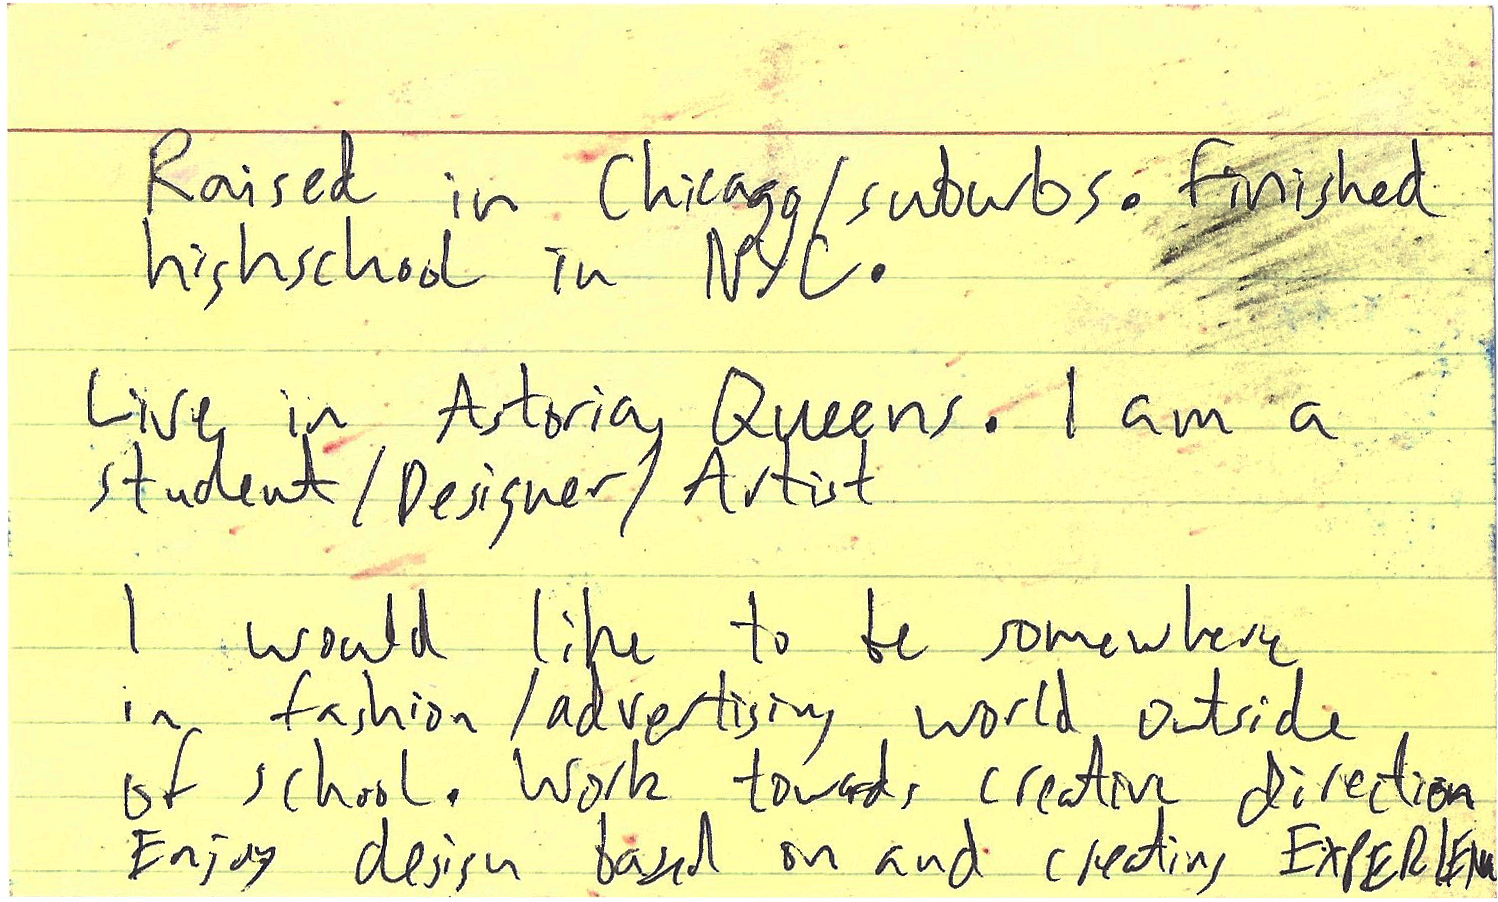 Raised in Chicago/suburbs. Finished
highschool in NYC.
Live in Astoria, Queens. I am a
student/Designer/Artist
I would like to be somewhere
in fashion/advertising world outside
of school. Work towards creative direction
Enjoy design based on and creating